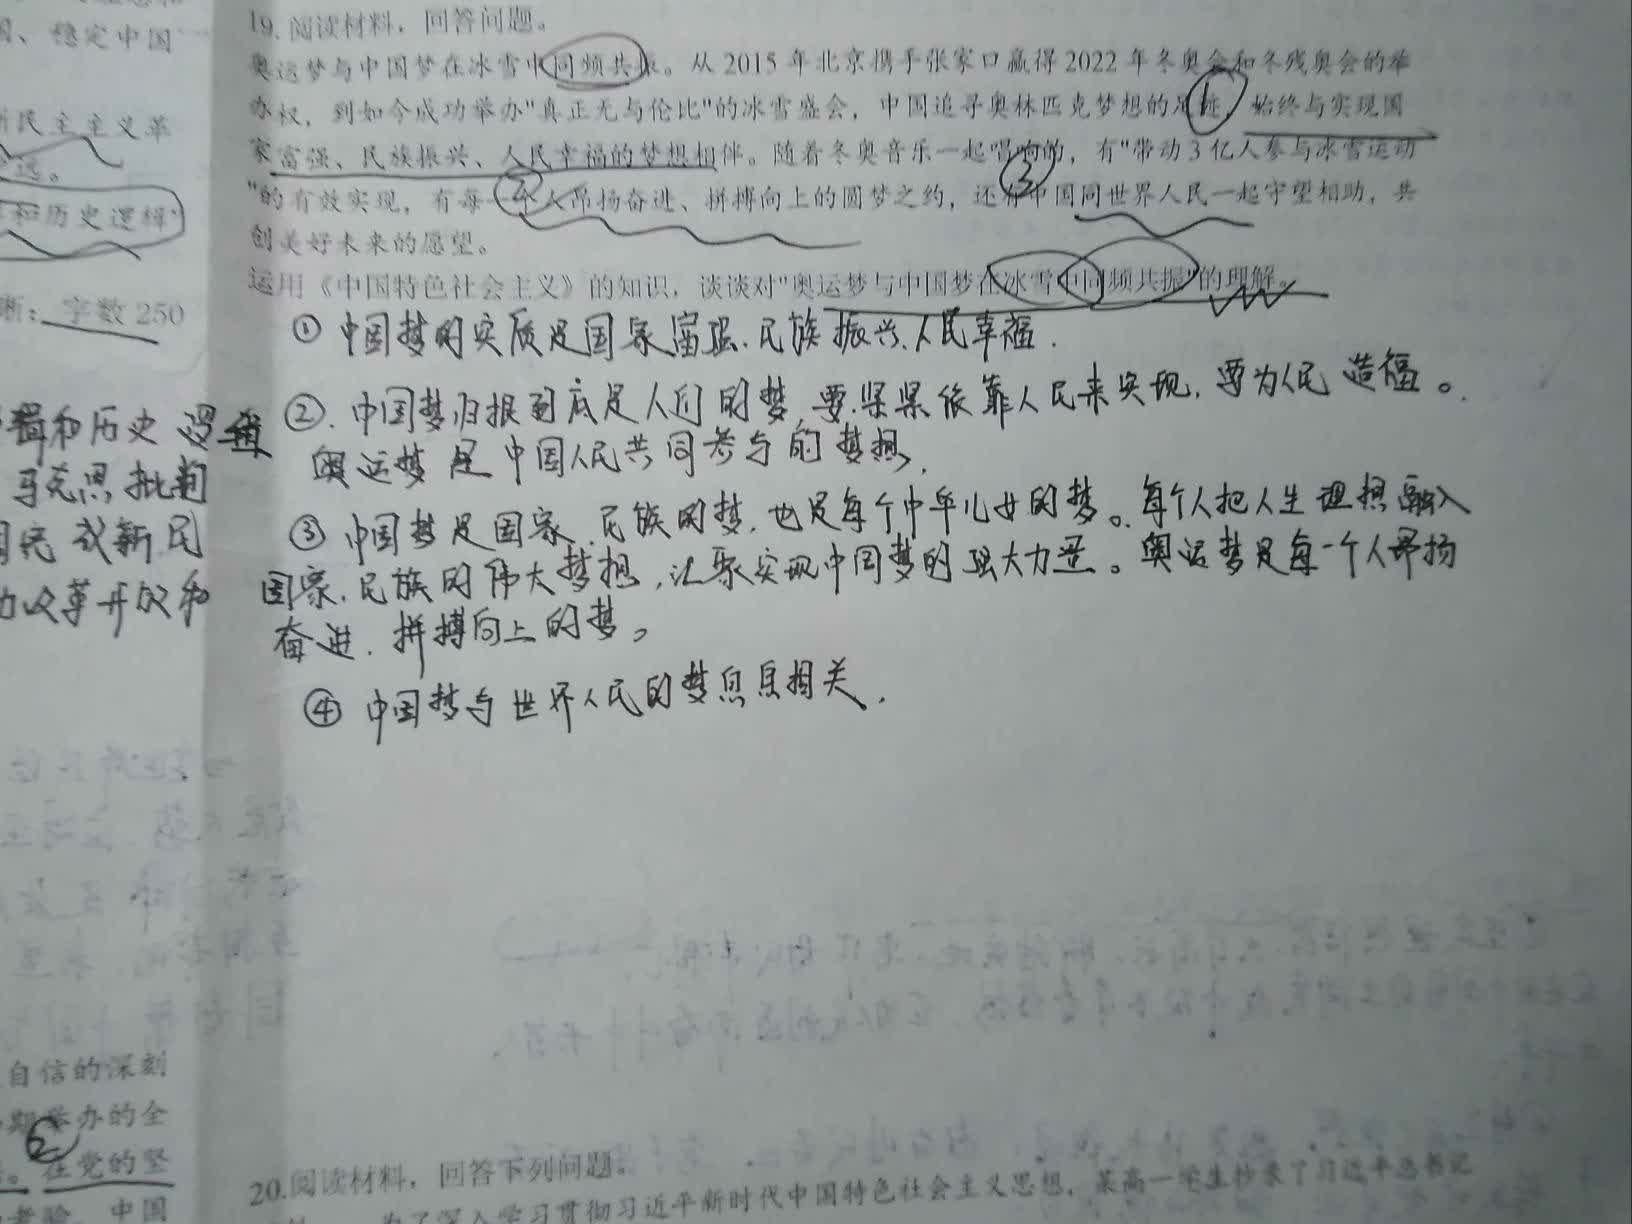 国、稳定中国
民主主义革
远。
和历史逻辑
晰；字数 250
辑和历史逻辑
马克思批判
成新民
改革开放和
自信的深刻
期举办的全
。在党的坚
考验，中国
19.阅读材料，回答问题。
奥运梦与中国梦在冰雪中同频共振。从 2015 年北京携手张家口赢得 2022 年冬奥会和冬残奥会的举
办权，到如今成功举办"真正无与伦比"的冰雪盛会，中国追寻奥林匹克梦想的足迹，始终与实现国
家富强、民族振兴、人民幸福的梦想相伴。随着冬奥音乐一起唱响的，有"带动 3 亿人参与冰雪运动
"的有效实现，有每一个人昂扬奋进、拼搏向上的圆梦之约，还有中国同世界人民一起守望相助，共
创美好未来的愿望。
运用《中国特色社会主义》的知识，谈谈对"奥运梦与中国梦在冰雪中同频共振"的理解。
① 中国梦的实质是国家富强、民族振兴、人民幸福.
②. 中国梦归根到底是人们的梦,要紧紧依靠人民来实现,要为人民造福。
奥运梦是中国人民共同参与的梦想,
③ 中国梦是国家、民族的梦,也是每个中华儿女的梦。每个人把人生理想融入
国家、民族的伟大梦想,汇聚实现中国梦的强大力量。奥运梦是每一个人昂扬
奋进、拼搏向上的梦。
④ 中国梦与世界人民的梦息息相关.
20.阅读材料，回答下列问题。
为了深入学习贯彻习近平新时代中国特色社会主义思想，某高一学生抄录了习近平总书记